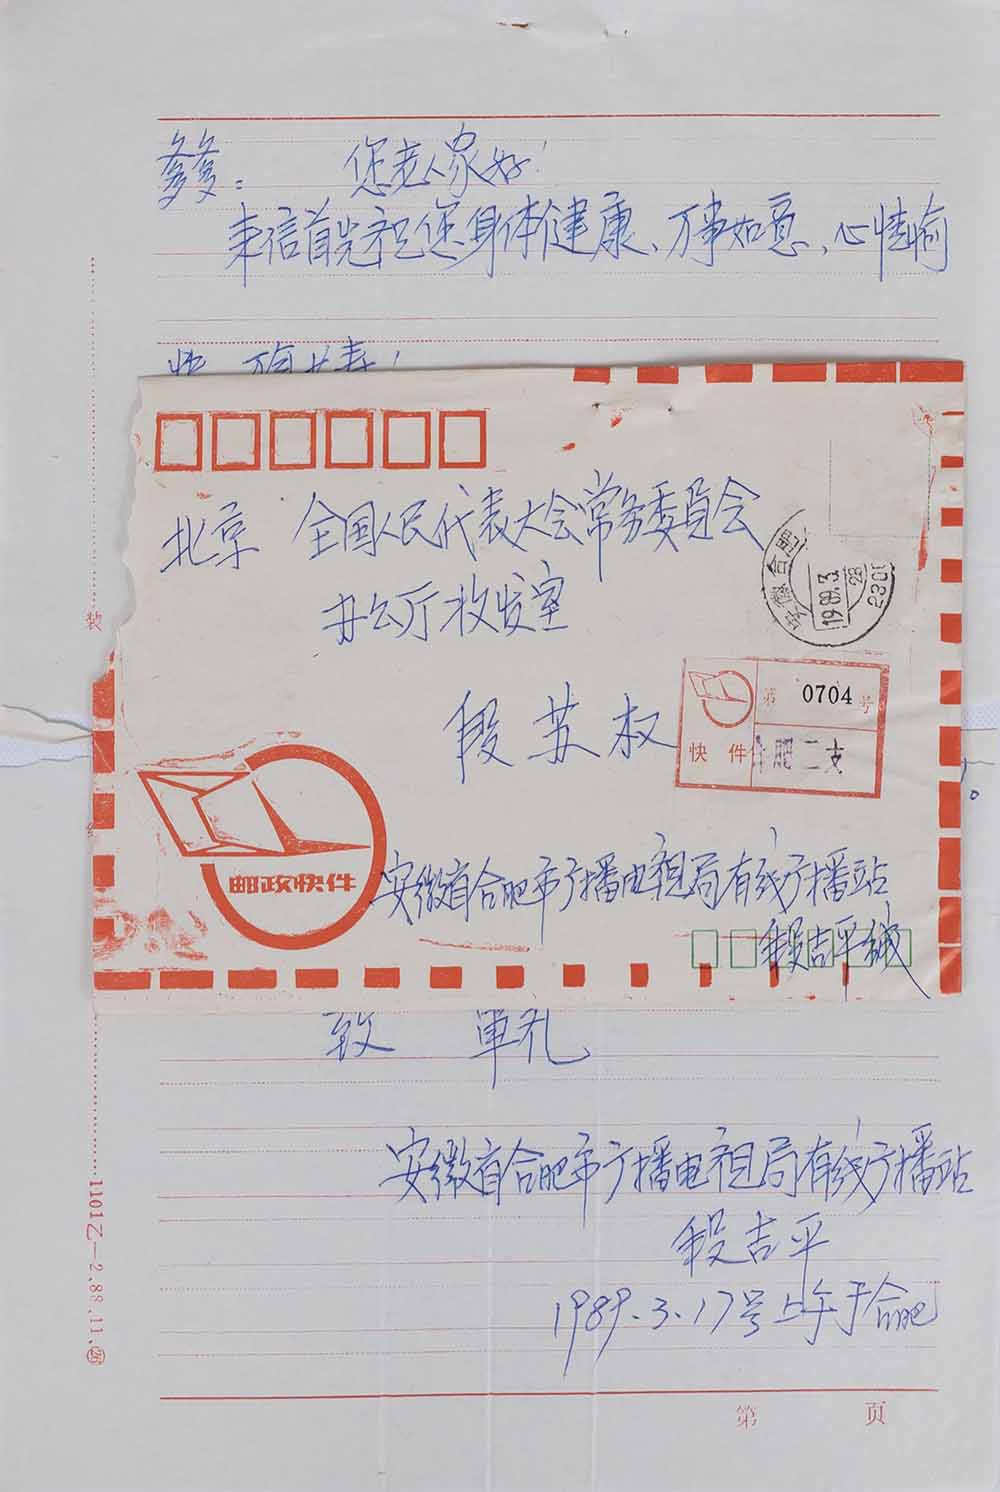 爹爹： 您老人家好！
来信首先祝您身体健康、万事如意、心情愉
快
北京 全国人民代表大会常务委員会
办公厅收发室
段苏权
安徽合肥
1989.3.
28
2301
第 0704 号
快件 合肥二支
邮政快件
安徽省合肥市广播电视局有线广播站
段吉平缄
致 軍礼
安徽省合肥市广播电视局有线广播站
段吉平
1989.3.17号上午于合肥
装
1101乙—2.88.11.
第 页